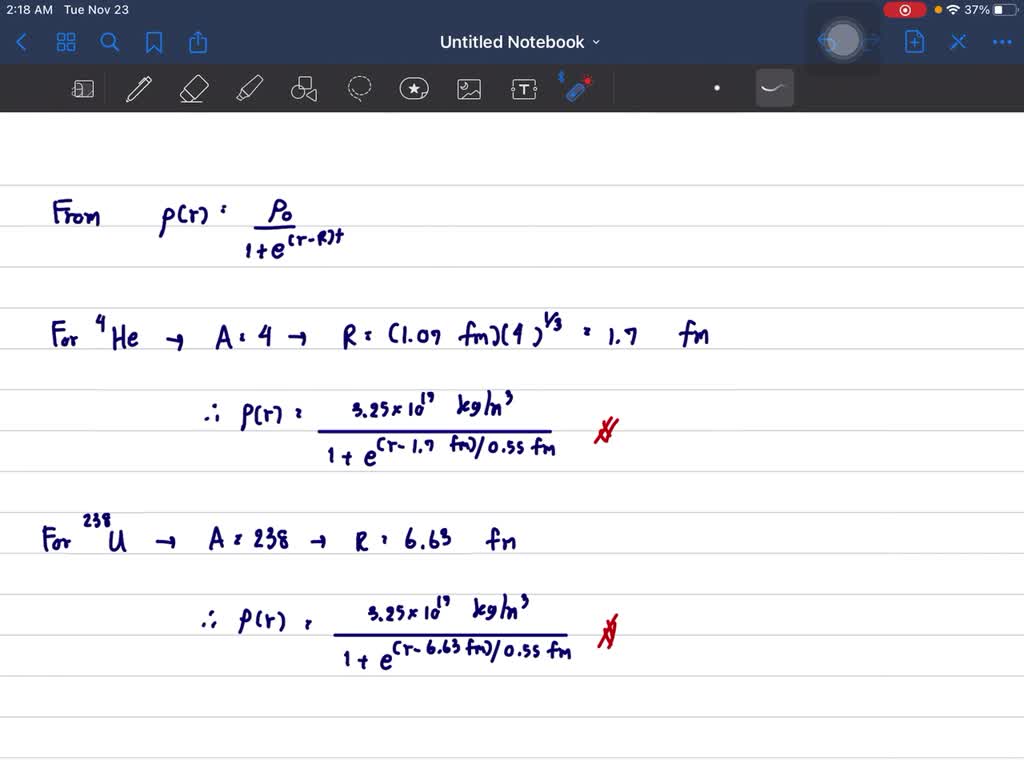 2:18 AM Tue Nov 23 37%
Untitled Notebook
T
From ρ(r) = ρ₀ / 1+e^(r-R)t
For ⁴He → A = 4 → R = (1.07 fm)(4)^1/3 = 1.7 fm
∴ ρ(r) = 3.25×10¹⁷ kg/m³ / 1+e^(r-1.7 fm)/0.55 fm
For ²³⁸U → A = 238 → R = 6.63 fm
∴ ρ(r) = 3.25×10¹⁷ kg/m³ / 1+e^(r-6.63 fm)/0.55 fm